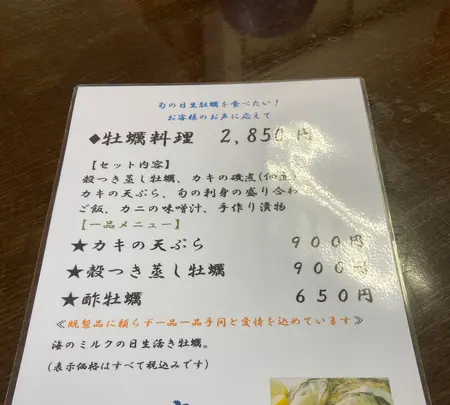 旬の日生牡蠣を食べたい！
お客様のお声に応えて
◆牡蠣料理 2,850円
【セット内容】
殻つき蒸し牡蠣、カキの磯煮(佃煮)
カキの天ぷら、旬の刺身の盛り合わ
ご飯、カニの味噌汁、手作り漬物
【一品メニュー】
★カキの天ぷら 900円
★殻つき蒸し牡蠣 900円
★酢牡蠣 650円
≪既製品に頼らず一品一品手間と愛情を込めています≫
海のミルクの日生活き牡蠣。
(表示価格はすべて税込みです)